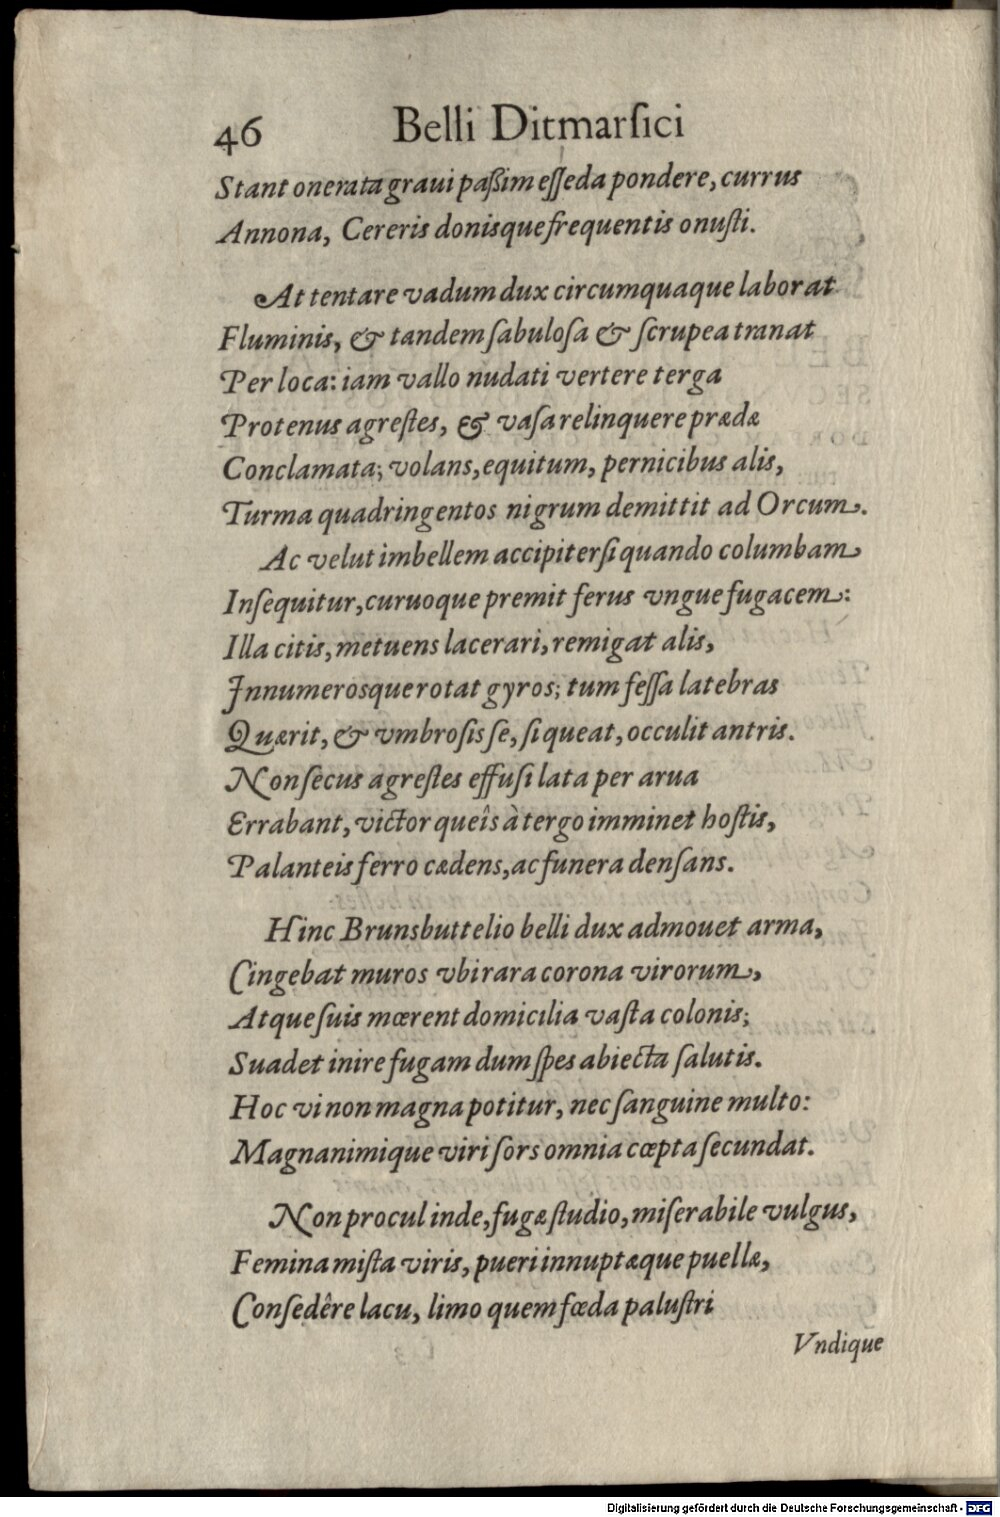 46 Belli Ditmarſici
Stant onerata graui paßim eſſeda pondere, currus
Annona, Cereris donisque frequentis onuſti.
At tentare vadum dux circumquaque laborat
Fluminis, & tandem ſabuloſa & ſcrupea tranat
Per loca: iam vallo nudati vertere terga
Protenus agreſtes, & vaſa relinquere prædæ
Conclamata; volans, equitum, pernicibus alis,
Turma quadringentos nigrum demittit ad Orcum.
Ac velut imbellem accipiter ſi quando columbam
Inſequitur, curuoque premit ferus vngue fugacem:
Illa citis, metuens lacerari, remigat alis,
Innumerosque rotat gyros; tum feſſa latebras
Quærit, & vmbroſis ſe, ſi queat, occulit antris.
Non ſecus agreſtes effuſi lata per arua
Errabant, victor queîs à tergo imminet hoſtis,
Palanteis ferro cædens, ac funera denſans.
Hinc Brunsbuttelio belli dux admouet arma,
Cingebat muros vbi rara corona virorum,
Atque ſuis mœrent domicilia vaſta colonis;
Suadet inire fugam dum ſpes abiecta ſalutis.
Hoc vi non magna potitur, nec ſanguine multo:
Magnanimique viri ſors omnia cœpta ſecundat.
Non procul inde, fugæ ſtudio, miſerabile vulgus,
Femina miſta viris, pueri innuptæque puellæ,
Conſedêre lacu, limo quem fœda paluſtri
Vndique
Digitalisierung gefördert durch die Deutsche Forschungsgemeinschaft - DFG